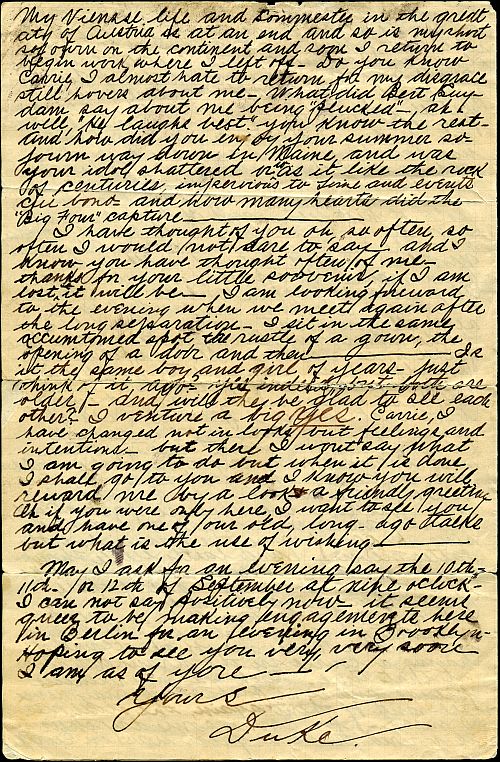 My Viennese life and Sommester in the great
city of Austria is at an end and so is my short
sojourn on the continent and soon I return to
begin work where I left off - Do you know
Carrie, I almost hate to return for my disgrace
still hovers about me - What did Bert Guy-
dam say about me being "plucked" - ah!
well, "he laughs best" you know the rest -
And how did you enjoy your summer so-
journ way down in Maine and was
your idol shattered or is it like the rock
of centuries, impervious to time and events
cui bono - and how many hearts did the
"Big Four" capture
I have thought of you oh so often, so
often I would not dare to say - and I
know you have thought often of me -
thanks for your little souvenir, if I am
lost, it will be - I am looking forward
to the evening when we meet again after
the long separation - I sit in the same
accustomed spot, the rustle of a gown, the
opening of a door and then Is
it the same boy and girl of years - just
think of it ago - but both are
older! - and will they be glad to see each
other? I venture a big Yes. Carrie, I
have changed not in looks, but feelings and
intentions - but there I wont say what
I am going to do but when it is done
I shall go to you and I know you will
reward me by a look - a friendly greeting
Oh if you were only here, I want to see you
and have one of our old, long-ago talks
but what is the use of wishing
May I ask for an evening say the 10th -
11th - or 12th of September at nine oclock -
I can not say positively now - it seems
queer to be making engagements here
in Berlin for an evening in Brooklyn -
Hoping to see you very, very soon
I am as of yore -
Yours
Duke.